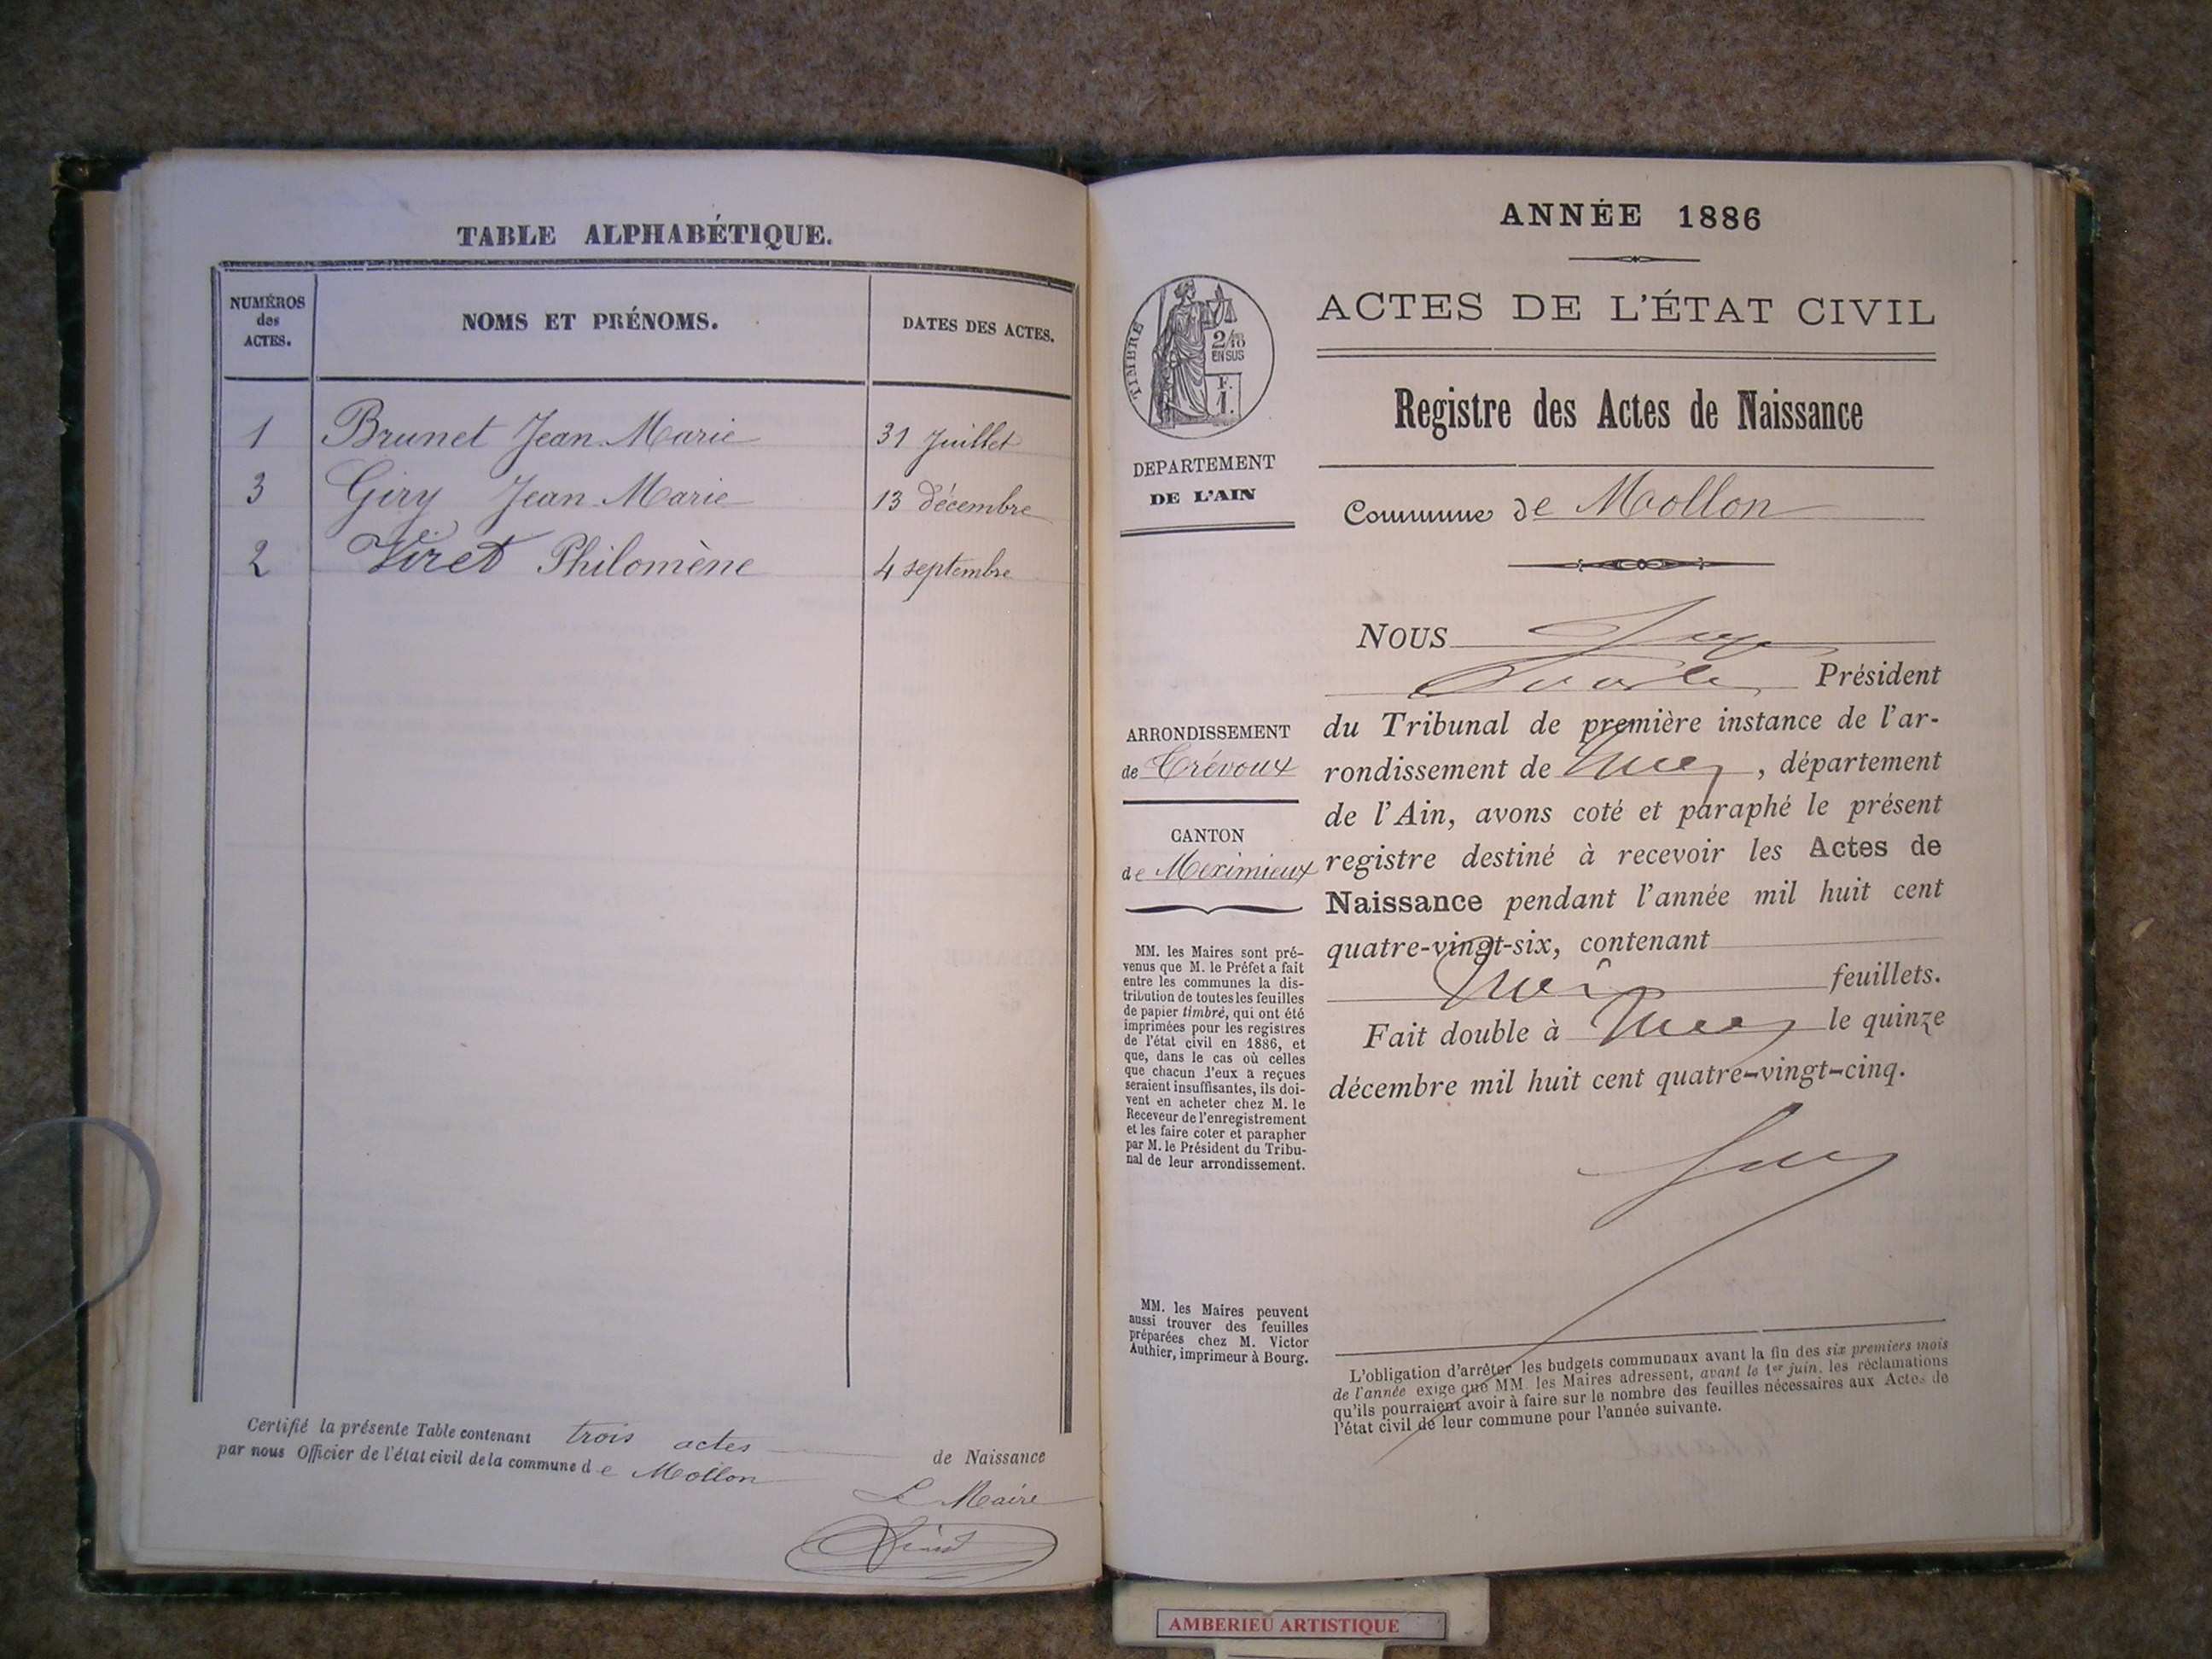 TABLE ALPHABÉTIQUE.
NUMÉROS
des
ACTES.
NOMS ET PRÉNOMS.
DATES DES ACTES.
1 Brunet Jean Marie 31 Juillet
3 Giry Jean Marie 13 décembre
2 Viret Philomène 4 septembre
Certifié la présente Table contenant trois actes de Naissance
par nous Officier de l'état civil de la commune de Mollon
L Maire
Viret
ANNÉE 1886
ACTES DE L'ÉTAT CIVIL
Registre des Actes de Naissance
Commune de Mollon
TIMBRE
2/10
EN SUS
F.
1.
DEPARTEMENT
DE L'AIN
ARRONDISSEMENT
de Trévoux
CANTON
de Meximieux
MM. les Maires sont pré-
venus que M. le Préfet a fait
entre les communes la dis-
tribution de toutes les feuilles
de papier timbré, qui ont été
imprimées pour les registres
de l'état civil en 1886, et
que, dans le cas où celles
que chacun d'eux a reçues
seraient insuffisantes, ils doi-
vent en acheter chez M. le
Receveur de l'enregistrement
et les faire coter et parapher
par M. le Président du Tribu-
nal de leur arrondissement.
MM. les Maires peuvent
aussi trouver des feuilles
préparées chez M. Victor
Authier, imprimeur à Bourg.
NOUS
Président
du Tribunal de première instance de l'ar-
rondissement de , département
de l'Ain, avons coté et paraphé le présent
registre destiné à recevoir les Actes de
Naissance pendant l'année mil huit cent
quatre-vingt-six, contenant
trois feuillets.
Fait double à le quinze
décembre mil huit cent quatre-vingt-cinq.
L'obligation d'arrêter les budgets communaux avant la fin des six premiers mois
de l'année exige que MM. les Maires adressent, avant le 1er juin, les réclamations
qu'ils pourraient avoir à faire sur le nombre des feuilles nécessaires aux Actes de
l'état civil de leur commune pour l'année suivante.
AMBERIEU ARTISTIQUE